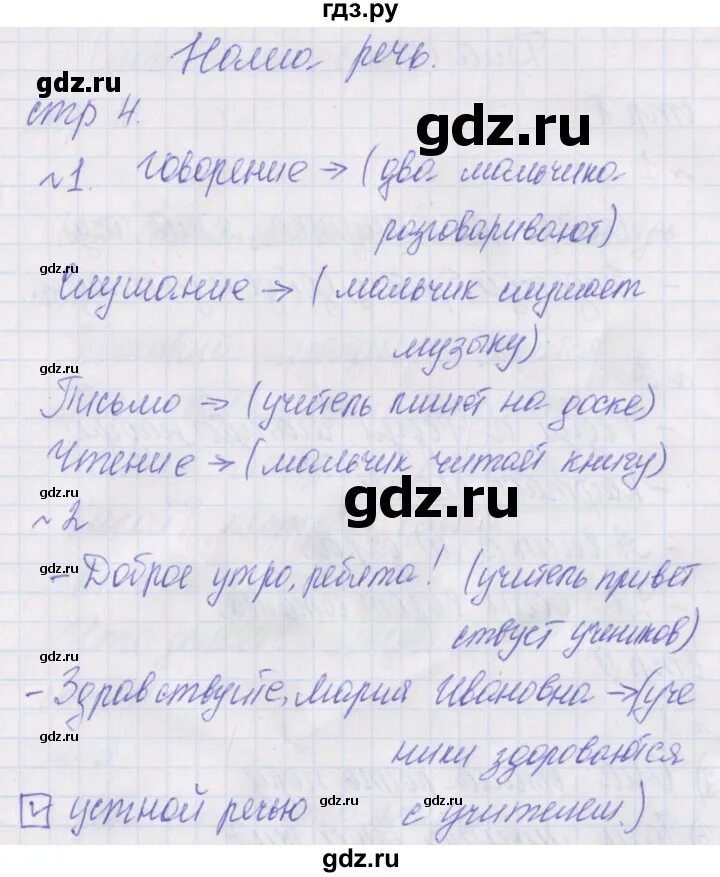 гдз.ру
Наша речь.
gdz.ru
стр 4.
gdz.ru
№1. Говорение → (два мальчика
разговаривают)
gdz.ru
Слушание → (мальчик слушает
музыку)
gdz.ru
Письмо → (учитель пишет на доске)
Чтение → (мальчик читает книгу)
gdz.ru
№2
gdz.ru
- Доброе утро, ребята! (учитель привет
ствует учеников)
gdz.ru
- Здравствуйте, Мария Ивановна → (уче
gdz.ru
ники здороваются
V устной речью gdz.ru с учителем.) gdz.ru
gdz.ru